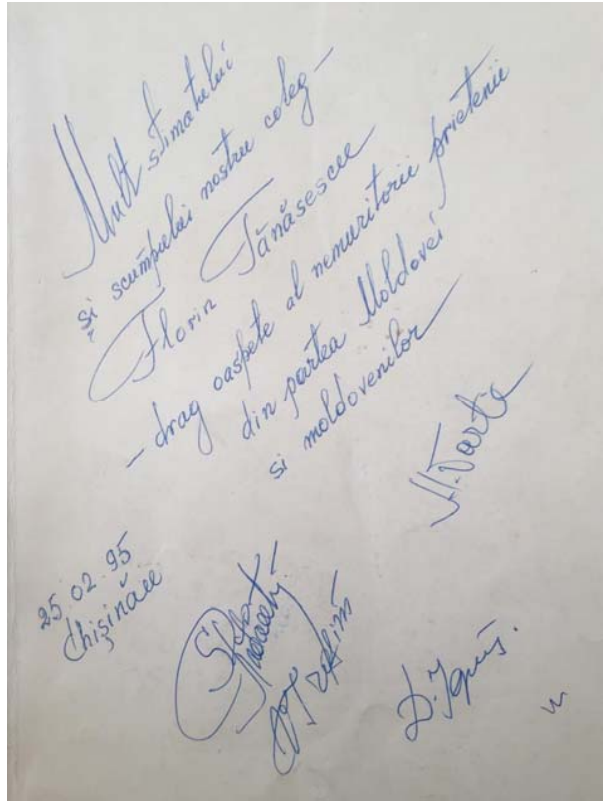 Mult stimatului
și scumpului nostru coleg –
Florin Tănăsescu
– drag oaspete al nemuritorii prietenii
din partea Moldovei
si moldovenilor
25.02.95
Chișinău